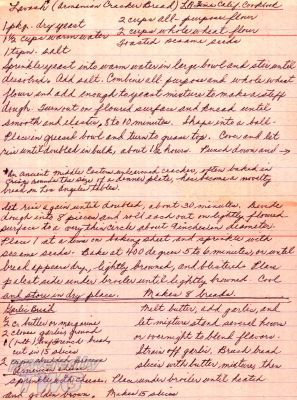 Lavash (Armenian Cracker Bread) L.A. Times Calif. Cookbook
1 pkg. dry yeast 2 cups all-purpose flour
1 1/2 cups warm water 2 cups whole wheat flour
1 tspn. salt toasted sesame seeds
Sprinkle yeast into warm water in large bowl and stir until
dissolved. Add salt. Combine all purpose and whole wheat
flours and add enough to yeast mixture to make a stiff
dough. Turn out on floured surface and knead until
smooth and elastic, 8 to 10 minutes. Shape into a ball.
Place in greased bowl and turn to grease top. Cover and let
rise until doubled in bulk, about 1 1/2 hours. Punch down and →
*An ancient Middle Eastern unleavened cracker, often baked in
rings around the size of a dinner plate, has become a novelty
bread on Los Angeles tables.
let rise again until doubled, about 30 minutes. Divide
dough into 8 pieces and roll each out on lightly floured
surface to a very thin circle about 9 inches in diameter.
Place 1 at a time on baking sheet and sprinkle with
sesame seeds. Bake at 400 degrees 5 to 6 minutes, or until
bread appears dry, lightly browned, and blistered. Place
palest side under broiler until lightly browned. Cool
and store in dry place. Makes 8 breads.
Garlic Bread
Melt butter, add garlic, and
1/2 c. butter or margarine let mixture stand several hours
2 cloves garlic, ground or overnight to blend flavors.
1 (1 lb.) French bread, Strain off garlic. Brush bread
cut in 15 slices slices with butter mixture, then
2 cups shredded
sprinkle with cheese. Place under broiler until heated
and golden brown. Makes 15 slices